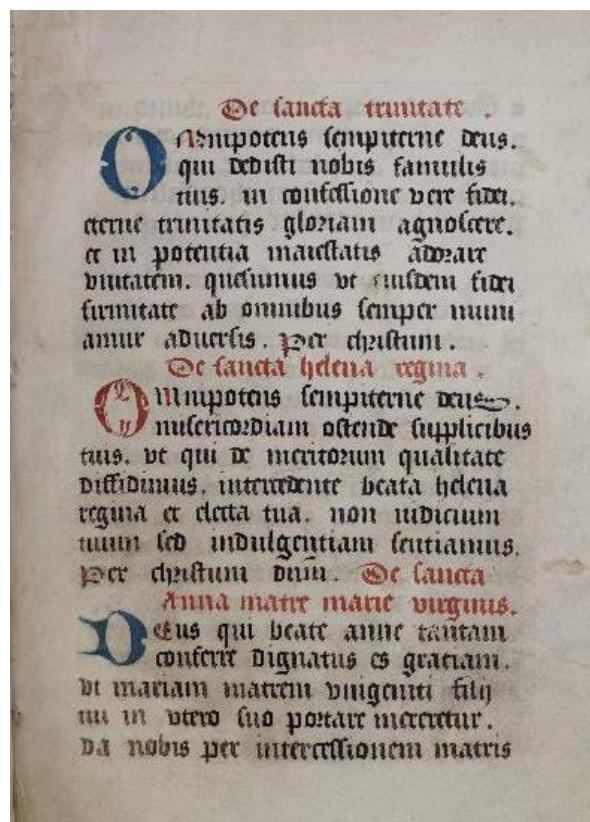 De sancta trinitate .
OMnipotens sempiterne deus.
qui dedisti nobis famulis
tuis. in confessione vere fidei.
eterne trinitatis gloriam agnoscere.
et in potentia maiestatis adorare
vnitatem. quesumus vt eiusdem fidei
firmitate ab omnibus semper muni
amur aduersis . Per christum .
De sancta helena regina .
OMnipotens sempiterne deus .
misericordiam ostende supplicibus
tuis. vt qui de meritorum qualitate
diffidimus. intercedente beata helena
regina et electa tua. non iudicium
tuum sed indulgentiam sentiamus.
Per christum dnm̄. De sancta
Anna matre marie virginis.
DEus qui beate anne tantam
conferre dignatus es gratiam.
vt mariam matrem vnigeniti filij
tui in vtero suo portare mereretur .
da nobis per intercessionem matris